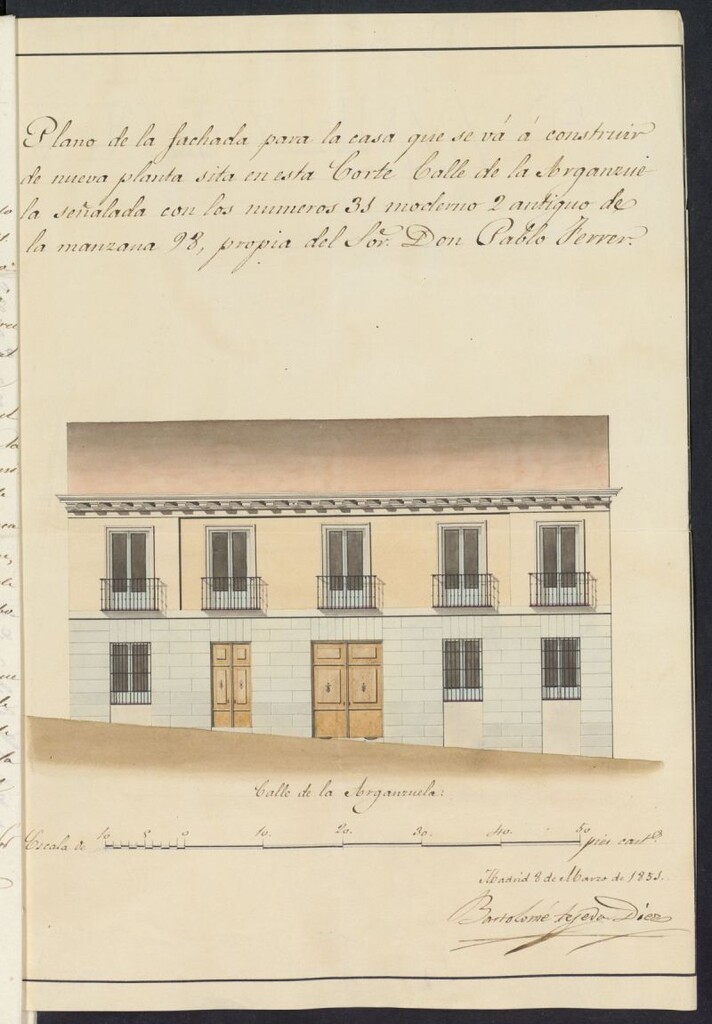 Plano de la fachada para la casa que se vá á construir
de nueva planta sita en esta Corte Calle de la Arganzue
la señalada con los numeros 31 moderno 2 antiguo de
la manzana 98, propia del Sor. Don Pablo Ferrer.
Calle de la Arganzuela.
Escala de 10 5 0 10. 20. 30. 40. 50 pies castls.
Madrid 8 de Marzo de 1851.
Bartolomé Tejeda Diez